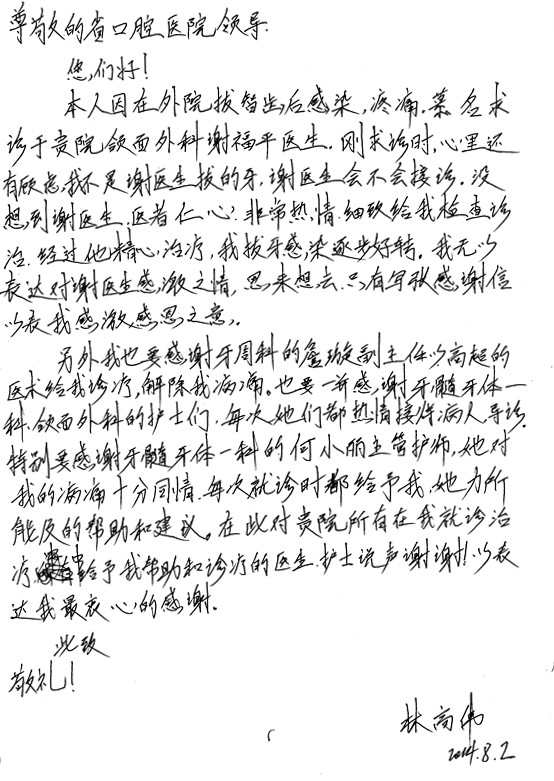 尊敬的省口腔医院领导:
您们好!
本人因在外院拔智齿后感染,疼痛.慕名求
诊于贵院颌面外科谢福平医生.刚求诊时,心里还
有顾虑,我不是谢医生拔的牙,谢医生会不会接诊.没
想到谢医生.医者仁心.非常热情.细致给我检查诊
治.经过他精心治疗,我拔牙感染逐步好转.我无以
表达对谢医生感激之情,思来想去.只有写秋感谢信
以表我感激感恩之意.
另外我也要感谢牙周科的詹璇副主任以高超的
医术给我诊疗,解除我病痛.也要一并感谢牙髓牙体一
科.颌面外科的护士们.每次她们都热情接待病人导诊.
特别要感谢牙髓牙体一科的何小丽主管护师,她对
我的病痛十分同情.每次就诊时都给予我,她力所
能及的帮助和建议。在此对贵院所有在我就诊治
疗中给予我帮助和诊疗的医生.护士说声谢谢!以表
达我最衷心的感谢.
此致
敬礼!
林高伟
2024.8.2